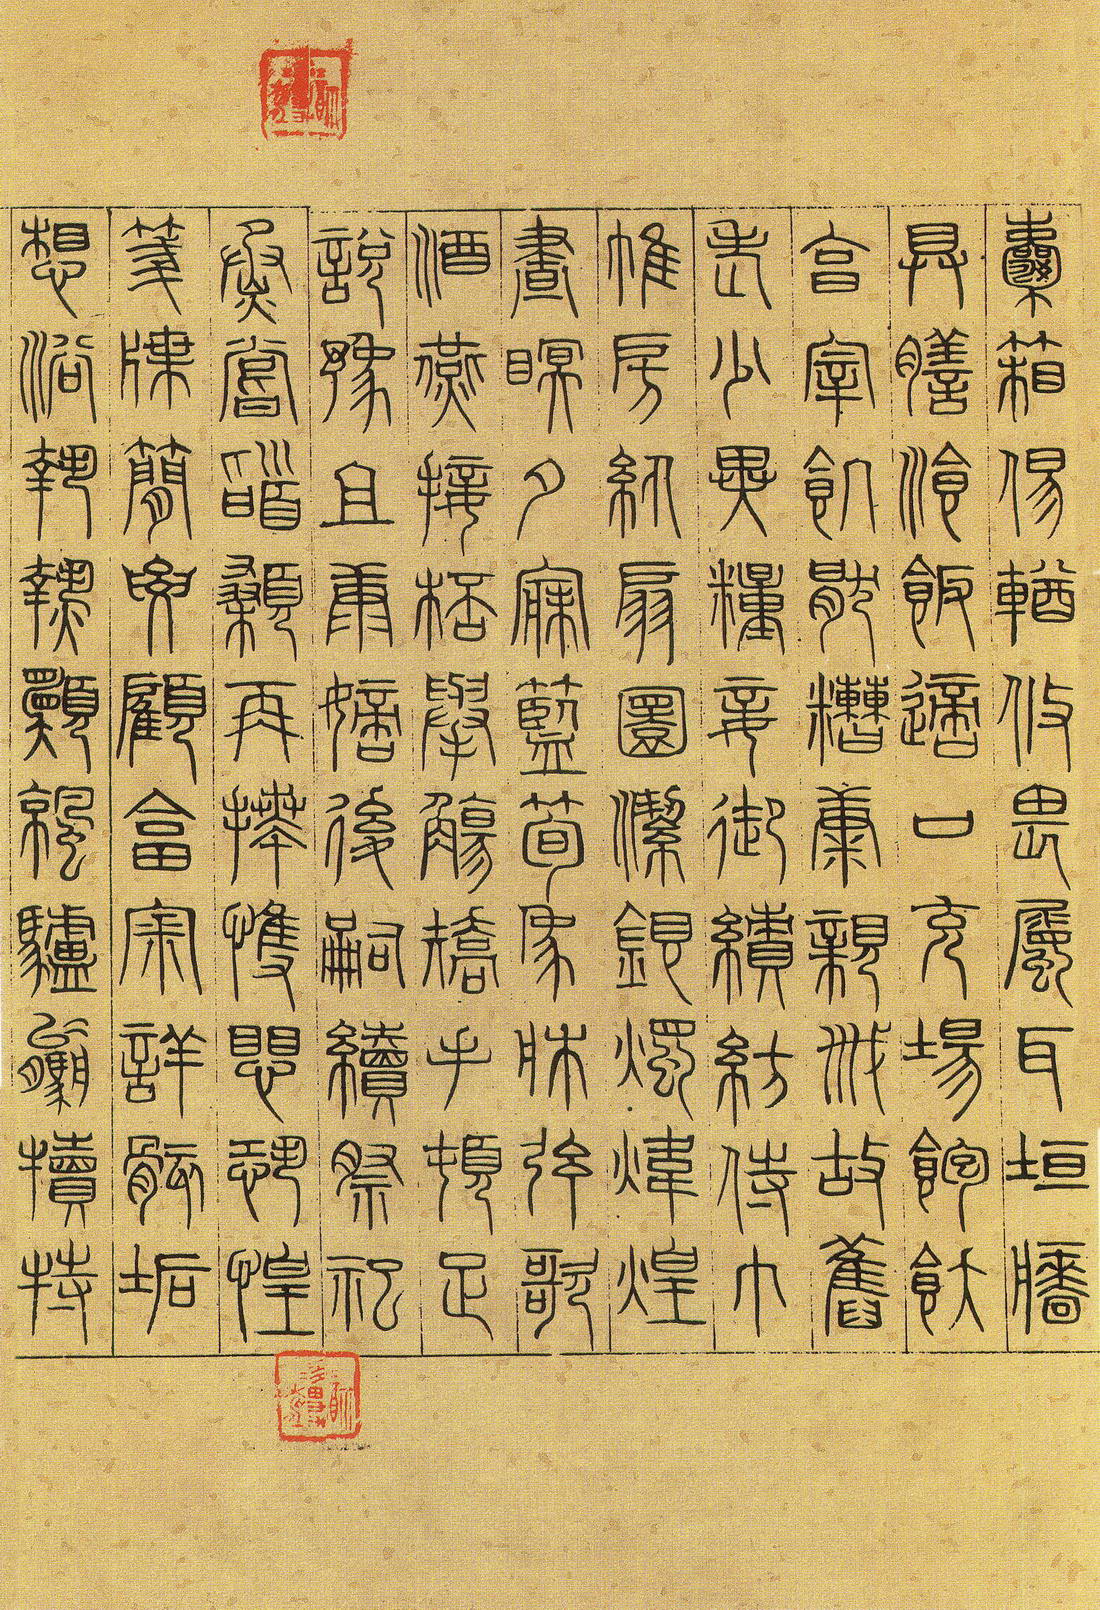 囊箱偒輶攸畏屬耳垣牆
具膳飡飯適口充場飽飫
亯宰飢猒糟康親戚故舊
老少異糧妾御績紡侍巾
帷房紈扇圓潔銀燭煒煌
晝瞑夕寐藍筍象牀弦歌
酒燕接桮舉觴矯手頓足
說豫且康嫡後嗣續祭祀
烝嘗䭫顙再拜愯懼恐惶
箋牒簡要顧畣審詳骸垢
想浴執熱願涼驢驘犢特